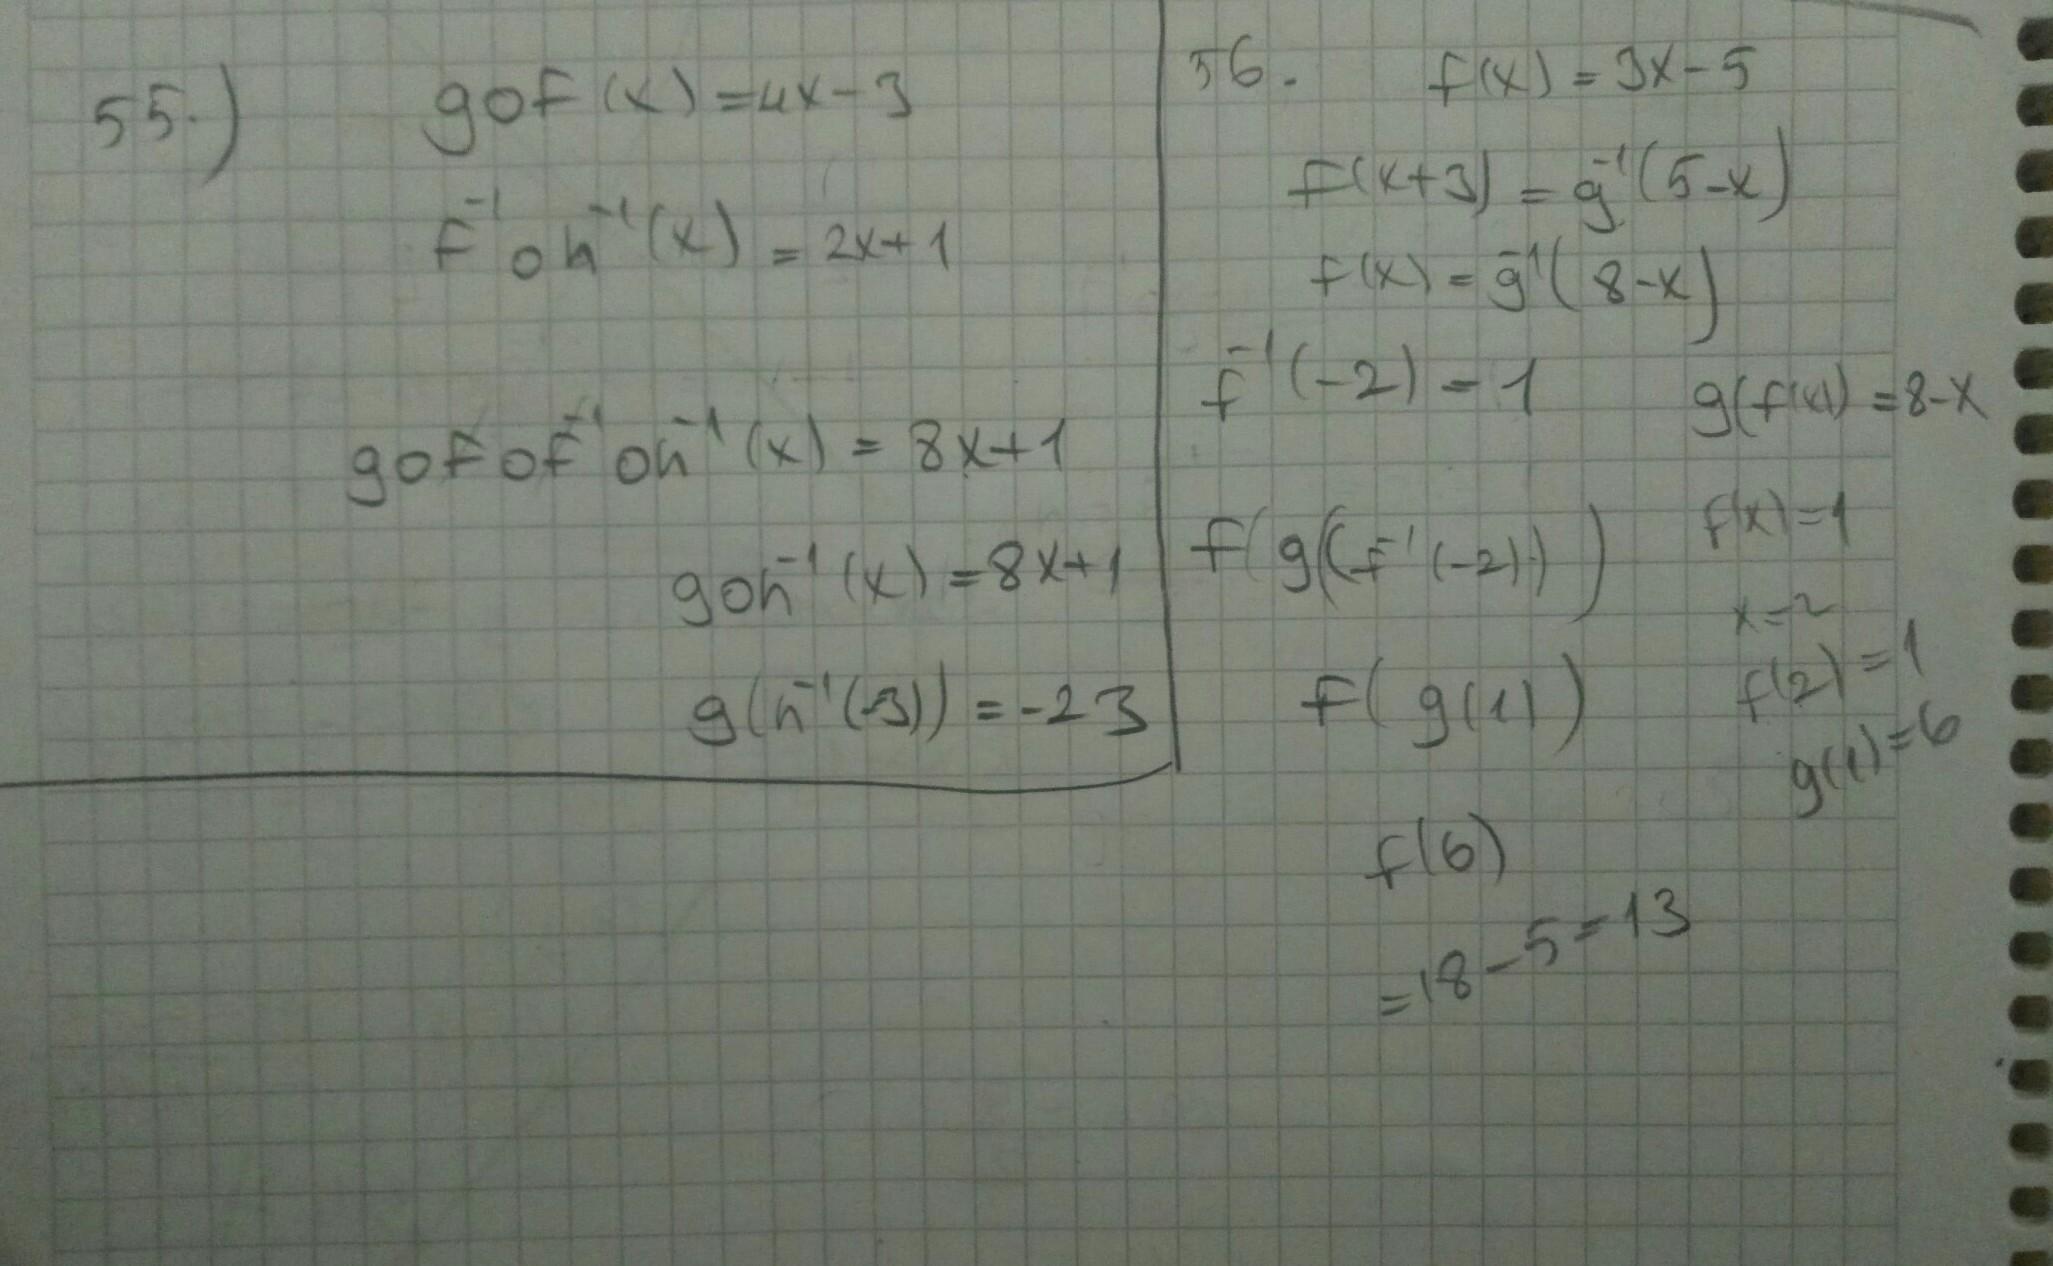 55.) gof(x) = 4x-3
f⁻¹oh⁻¹(x) = 2x+1
gofof⁻¹oh⁻¹(x) = 8x+1
goh⁻¹(x) = 8x+1
g(h⁻¹(-3)) = -23
56. f(x) = 3x-5
f(x+3) = g⁻¹(5-x)
f(x) = g⁻¹(8-x)
f⁻¹(-2) = 1
g(f(x)) = 8-x
f(g(f⁻¹(-2)))
f(x) = 1
x = 2
f(2) = 1
g(1) = 6
f(g(1))
f(6)
= 18-5 = 13